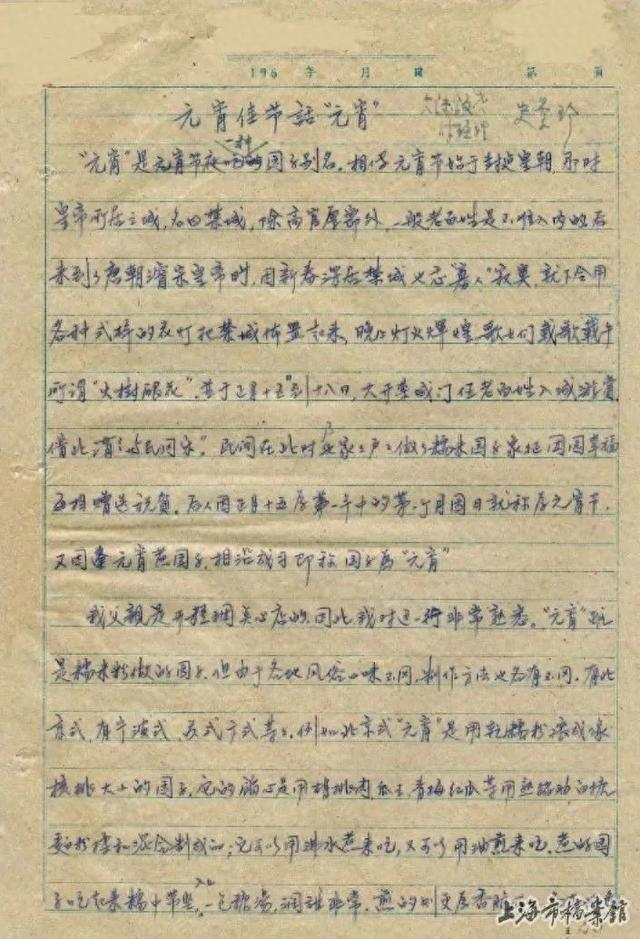 196 年 月 日 第 页
元宵佳节话“元宵”
一种
“元宵”是元宵节夜吃的团子别名。相传元宵节始于封建皇朝，那时
皇帝所居之城，名曰禁城，除高官厚爵外，一般老百姓是不准入内的，后
来到了唐朝睿宗皇帝时，因新春深居禁城也感寂寞，就下令用
各种式样的花灯把禁城佈置起来，晚上灯火辉煌，歌女们载歌载午
所谓“火树银花”，并于正月十五到十八日，大开禁城门任老百姓入城游赏，
借此“与民同乐”。民间在此时家家户户做了糯米团子象征团圆幸福
互相赠送祝贺。后人因正月十五为第一年中的第一个月圆日就称为元宵节，
又因逢元宵煮团子，相沿成习即称团子为“元宵”
我父亲是开糕团点心店的，因此我对这一行非常熟悉。“元宵”虽
是糯米粉做的团子，但由于各地风俗口味不同，制作方法也各有不同，有北
京式，有宁波式、苏式、广式等等，例如北京式“元宵”是用乾糯粉滚成象
核桃大小的团子，它的馅心是用胡桃肉、瓜子、青梅、红瓜等用熟猪油白糖
和混合制成的；它可以用沸水煮来吃，又可以用油煎来吃，煮的团
子吃起来糯中带坚，入口一包糖汤，润甜非常，煎的则更为香脆
上海市档案馆